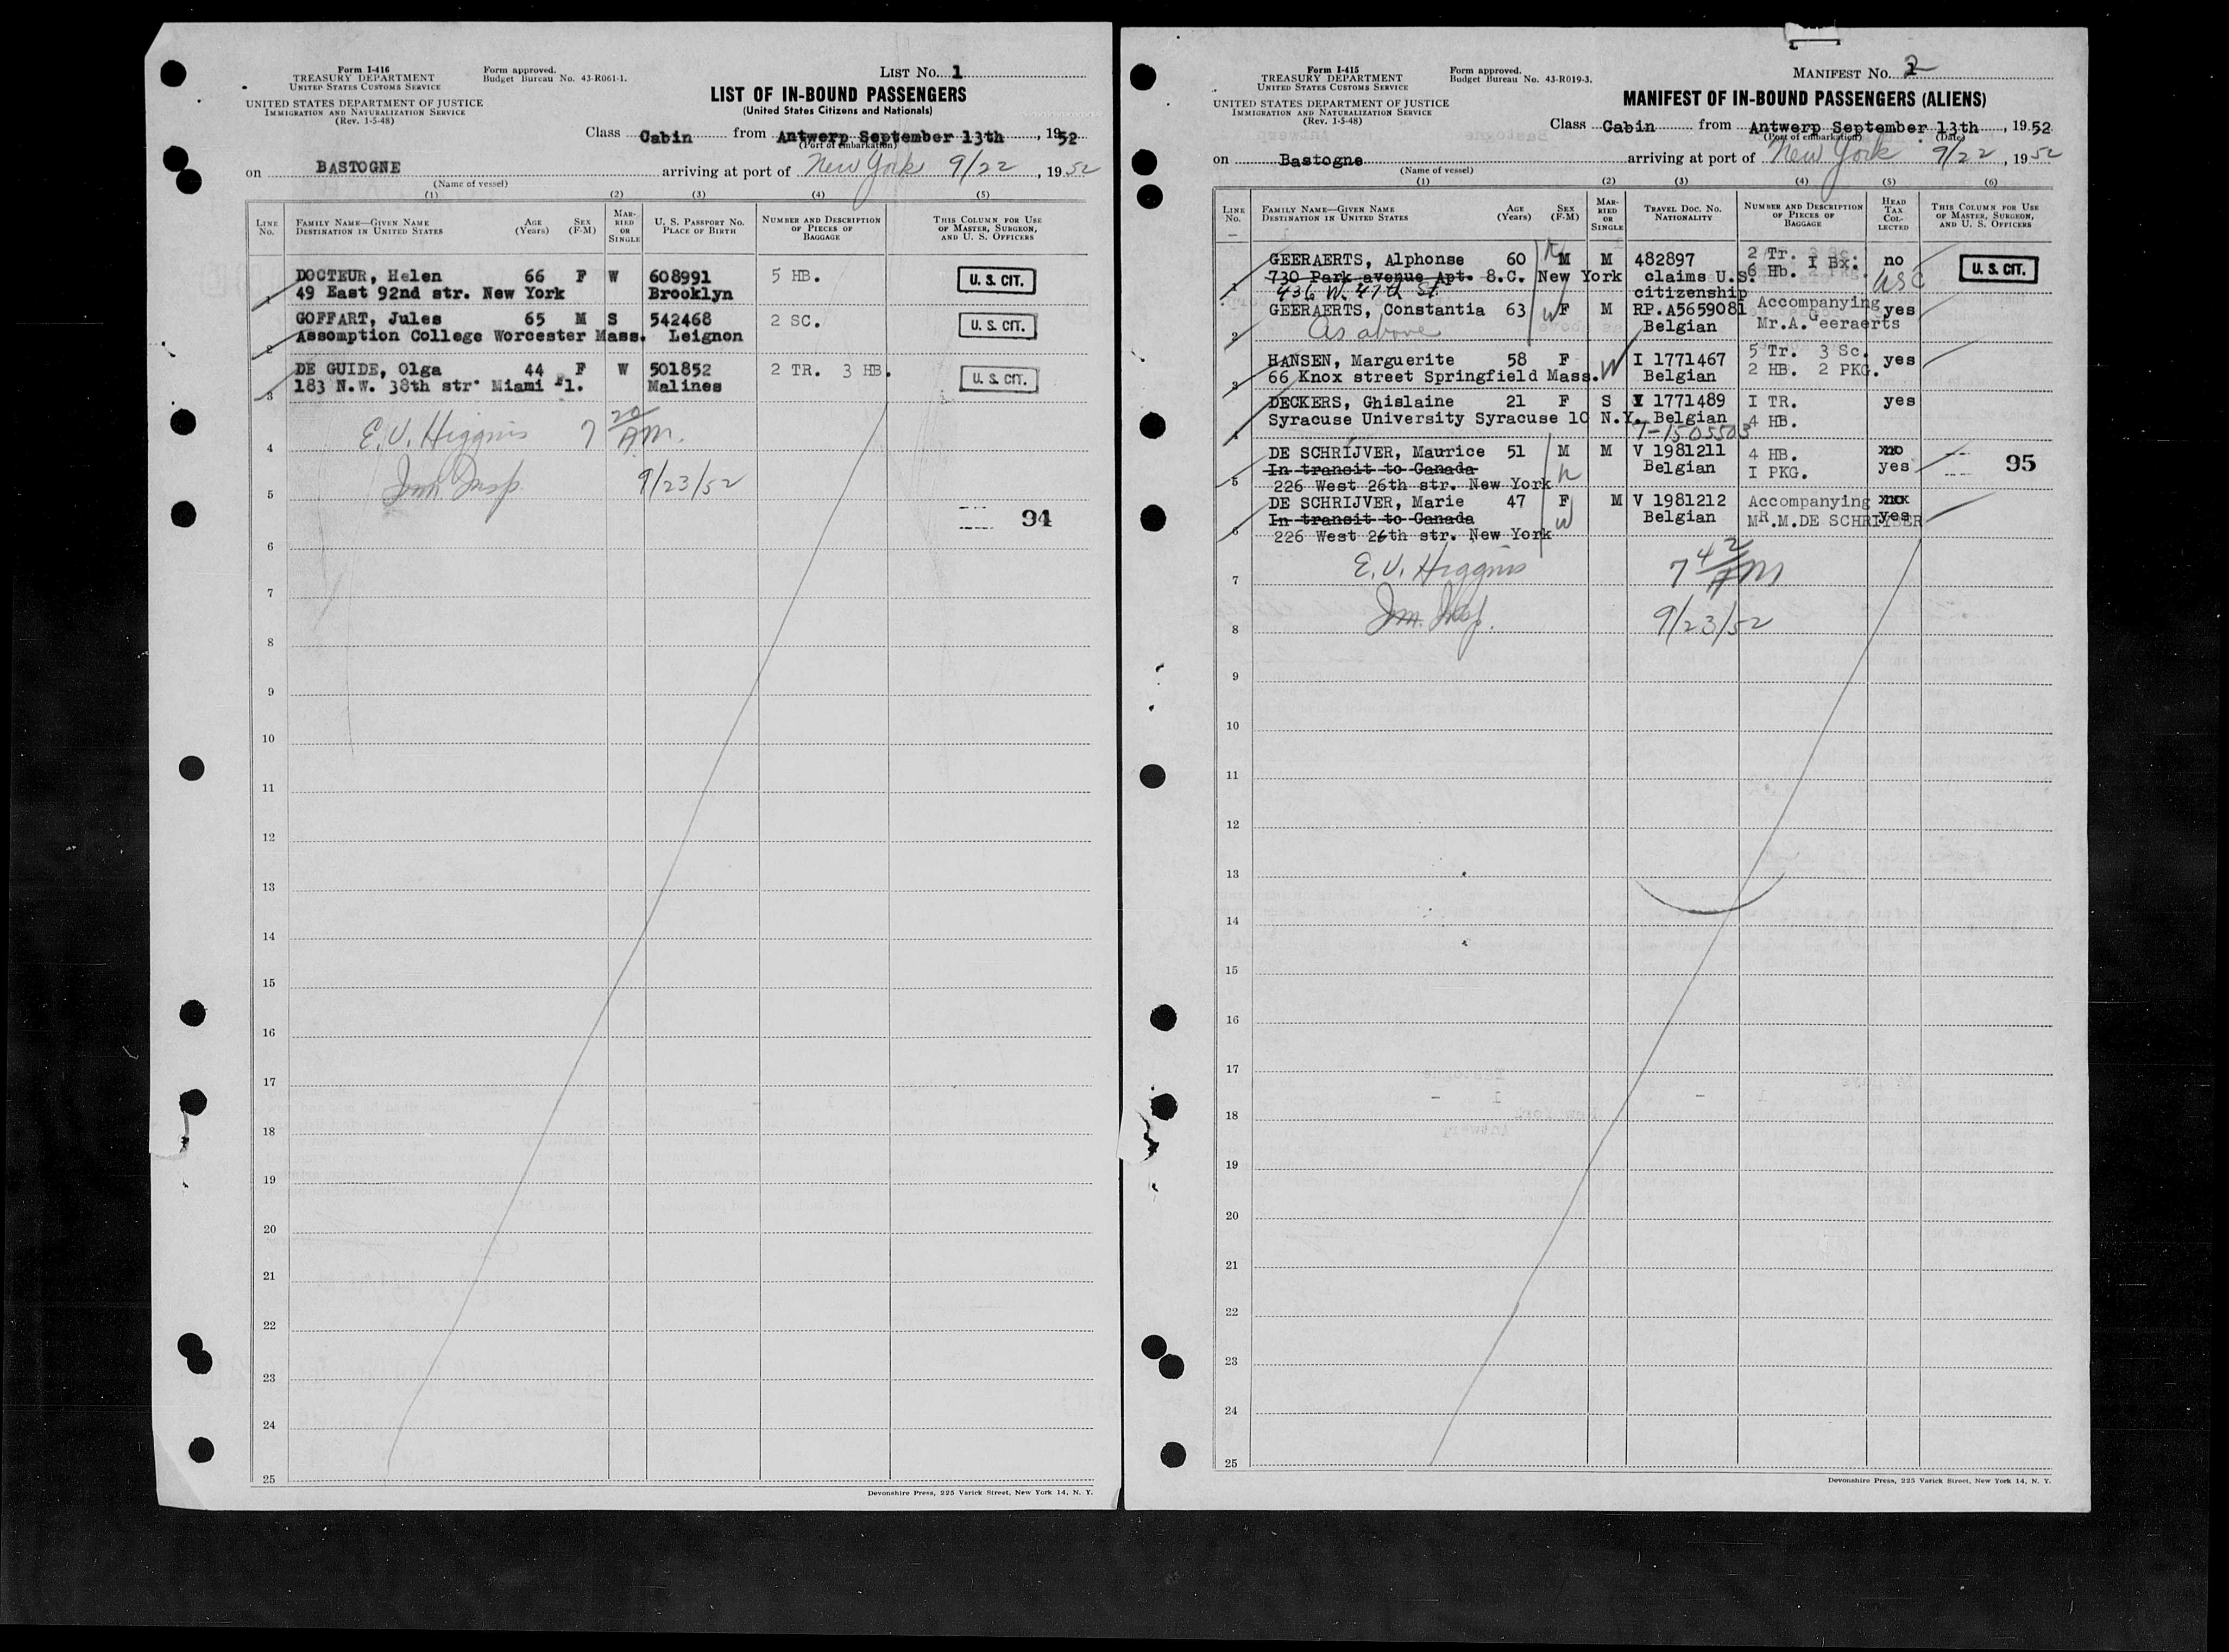 Form I-416
TREASURY DEPARTMENT
UNITED STATES CUSTOMS SERVICE
UNITED STATES DEPARTMENT OF JUSTICE
IMMIGRATION AND NATURALIZATION SERVICE
(Rev. 1-5-48)
Form approved.
Budget Bureau No. 43-R061-1.
LIST No. 1
LIST OF IN-BOUND PASSENGERS
(United States Citizens and Nationals)
Class Cabin from Antwerp September 13th, 1952
(Port of embarkation)
on BASTOGNE arriving at port of New York 9/22, 1952
(Name of vessel)
(1) (2) (3) (4) (5)
LINE No. FAMILY NAME—GIVEN NAME DESTINATION IN UNITED STATES AGE (Years) SEX (F-M) MARRIED OR SINGLE U. S. PASSPORT NO. PLACE OF BIRTH NUMBER AND DESCRIPTION OF PIECES OF BAGGAGE THIS COLUMN FOR USE OF MASTER, SURGEON, AND U. S. OFFICERS
DOCTEUR, Helen 66 F W 608991 5 HB. U. S. CIT.
1 49 East 92nd str. New York Brooklyn
GOFFART, Jules 65 M S 542468 2 SC. U. S. CIT.
2 Assomption College Worcester Mass. Leignon
DE GUIDE, Olga 44 F W 501852 2 TR. 3 HB. U. S. CIT.
3 183 N.W. 38th str. Miami Fl. Malines
4 E. V. Higgins 7 20 AM.
5 Imm Insp. 9/23/52
94
6
7
8
9
10
11
12
13
14
15
16
17
18
19
20
21
22
23
24
25
Devonshire Press, 225 Varick Street, New York 14, N. Y.
Form I-415
TREASURY DEPARTMENT
UNITED STATES CUSTOMS SERVICE
UNITED STATES DEPARTMENT OF JUSTICE
IMMIGRATION AND NATURALIZATION SERVICE
(Rev. 1-5-48)
Form approved.
Budget Bureau No. 43-R019-3.
MANIFEST No. 2
MANIFEST OF IN-BOUND PASSENGERS (ALIENS)
Class Cabin from Antwerp September 13th, 1952
(Port of embarkation) (Date)
on Bastogne arriving at port of New York 9/22, 1952
(Name of vessel)
(1) (2) (3) (4) (5) (6)
LINE No. FAMILY NAME—GIVEN NAME DESTINATION IN UNITED STATES AGE (Years) SEX (F-M) MARRIED OR SINGLE TRAVEL DOC. NO. NATIONALITY NUMBER AND DESCRIPTION OF PIECES OF BAGGAGE HEAD TAX COLLECTED THIS COLUMN FOR USE OF MASTER, SURGEON, AND U. S. OFFICERS
GEERAERTS, Alphonse 60 M M 482897 2 Tr. no U. S. CIT.
730 Park avenue Apt. 8.C. New York claims U.S. 6 Hb. I Bx. USC
1 436 W. 47th St. citizenship
GEERAERTS, Constantia 63 W F M RP.A5659081 Accompanying yes
2 As above Belgian Mr.A.Geeraerts
HANSEN, Marguerite 58 F W I 1771467 5 Tr. 3 Sc. yes
3 66 Knox street Springfield Mass. Belgian 2 HB. 2 PKG.
DECKERS, Ghislaine 21 F S I 1771489 I TR. yes
Syracuse University Syracuse 10 N.Y. Belgian 4 HB.
4 T-1505503
DE SCHRIJVER, Maurice 51 M M V 1981211 4 HB. no
In transit to Canada Belgian I PKG. yes 95
5 226 West 26th str. New York
DE SCHRIJVER, Marie 47 F M V 1981212 Accompanying no
In transit to Canada W Belgian MR.M.DE SCHRIJVER yes
6 226 West 26th str. New York
7 E. V. Higgins 7 42 AM
8 Imm. Insp. 9/23/52
9
10
11
12
13
14
15
16
17
18
19
20
21
22
23
24
25
Devonshire Press, 225 Varick Street, New York 14, N. Y.